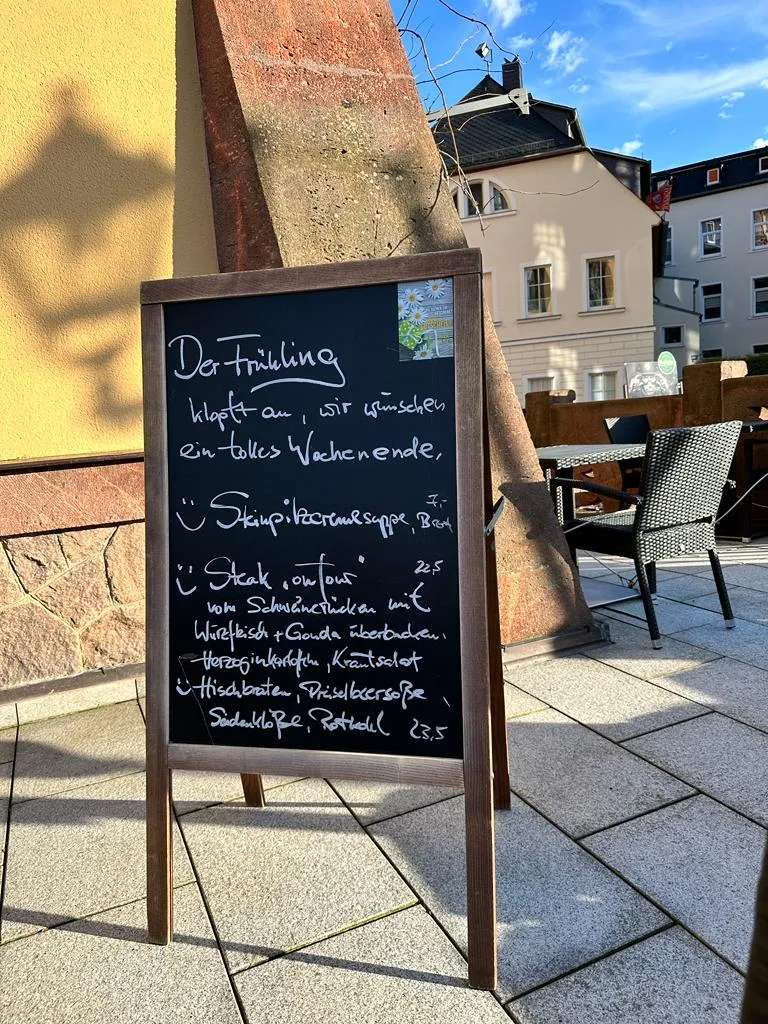 Der Frühling
klopft an, wir wünschen
ein tolles Wochenende,
Steinpilzcremesuppe, Brot 7,-
Steak "on Tour" 22,5
vom Schweinerücken mit
Würzfleisch + Gouda überbacken,
Herzoginkartoffeln, Krautsalat
Hirschbraten, Preiselbeersoße
Seidenklöße, Rotkohl 23,5